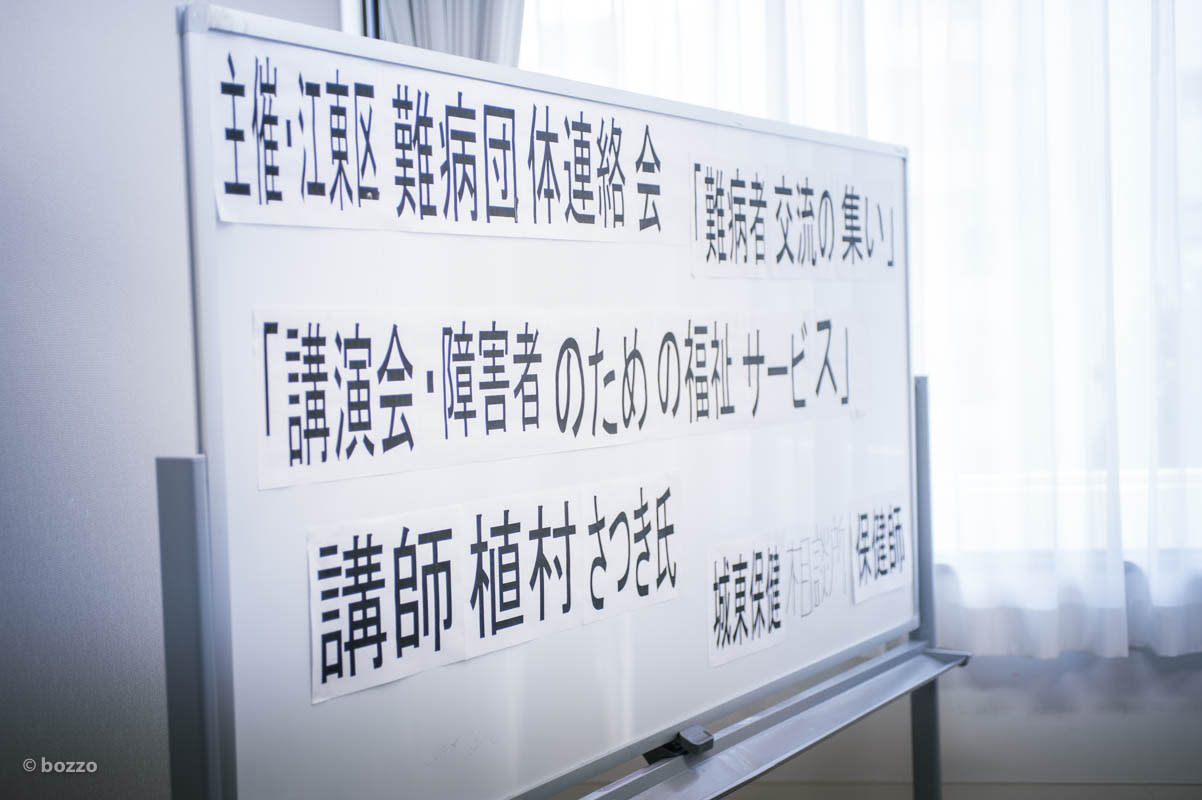 主催・江東区 難病団体連絡会
「難病者交流の集い」
「講演会・障害者のための福祉サービス」
講師 植村さつき氏
城東保健相談所 保健師
© bozzo